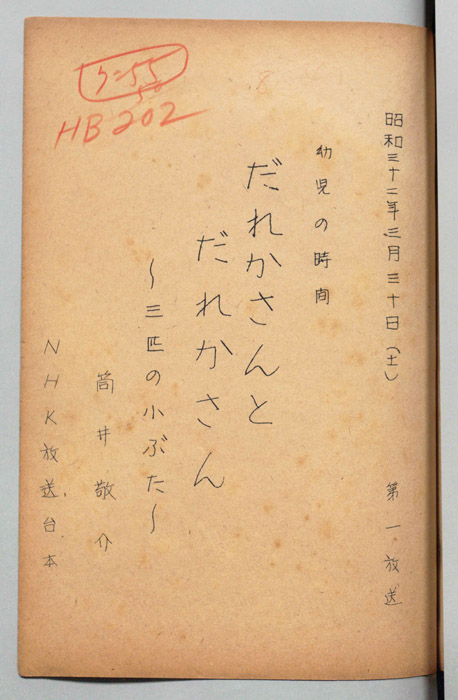 昭和三十二年三月三十日(土)
第一放送
幼児の時間
だれかさんと
だれかさん
～三匹の小ぶた～
筒井敬介
NHK放送台本
HB202